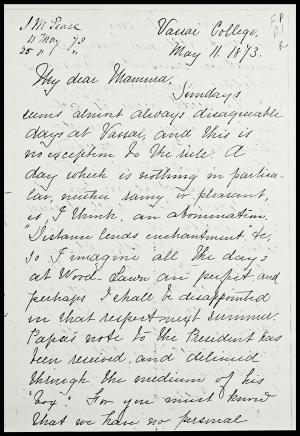 J. M. Pease
11 May 73
25 " " "
Vassar College,
May 11. 1873.
My dear Mamma,
Sundays
seems almost always disagreeable
days at Vassar, and this is
no exception to the rule. A
day which is nothing in particu-
lar, neither rainy or pleasant,
is, I think, an abomination.
"Distance lends enchantment" &c,
so I imagine all the days
at Wood-Lawn are perfect, and
perhaps I shall be disappointed
in that respect next summer.
Papa's note to the President has
been received, and delivered
through the medium of his
"box". For you must know
that we have no personal